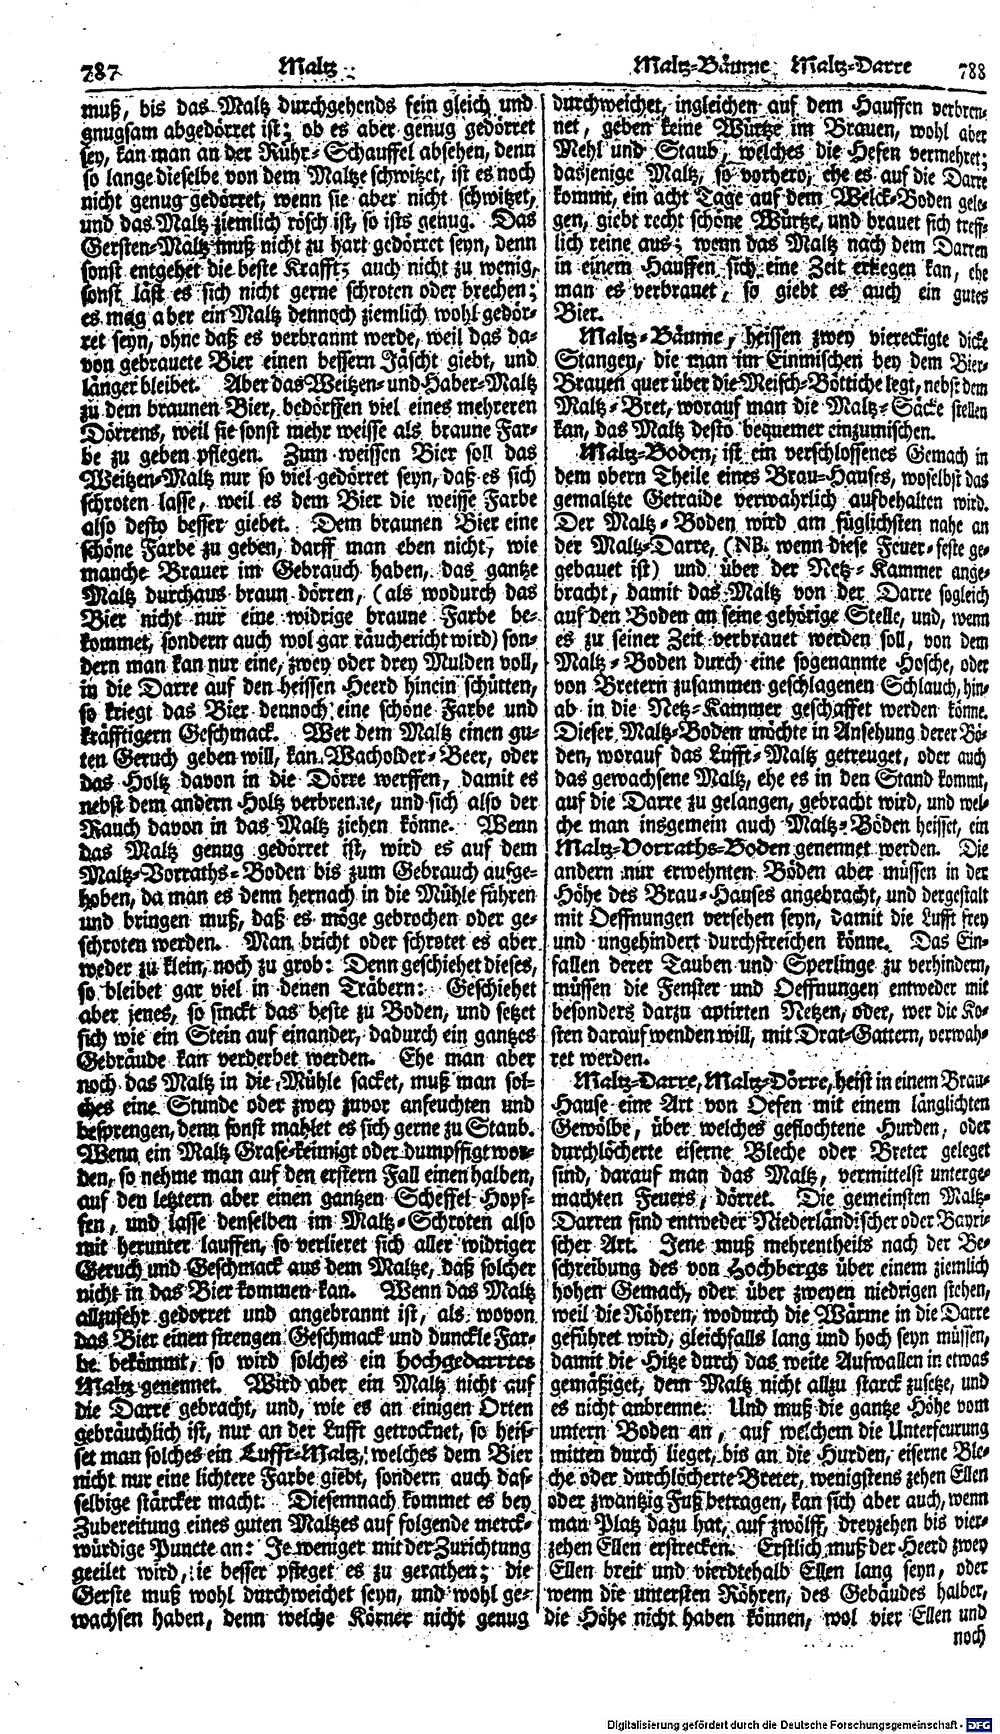 787
Maltz
muß, bis das Maltz durchgehends fein gleich und
gnugsam abgedörret ist; ob es aber genug gedörret
sey, kan man an der Rühr-Schauffel absehen, denn
so lange dieselbe von dem Maltze schwitzet, ist es noch
nicht genug gedörret, wenn sie aber nicht schwitzet,
und das Maltz ziemlich rösch ist, so ists genug. Das
Gersten-Maltz muß nicht zu hart gedörret seyn, denn
sonst entgehet die beste Krafft; auch nicht zu wenig,
sonst läst es sich nicht gerne schroten oder brechen;
es mag aber ein Maltz dennoch ziemlich wohl gedör-
ret seyn, ohne daß es verbrannt werde, weil das da-
von gebrauete Bier einen bessern Jäscht giebt, und
länger bleibet. Aber das Weitzen- und Haber-Maltz
zu dem braunen Bier, bedörffen viel eines mehreren
Dörrens, weil sie sonst mehr weisse als braune Far-
be zu geben pflegen. Zum weissen Bier soll das
Weitzen-Maltz nur so viel gedörret seyn, daß es sich
schroten lasse, weil es dem Bier die weisse Farbe
also desto besser giebet. Dem braunen Bier eine
schöne Farbe zu geben, darff man eben nicht, wie
manche Brauer im Gebrauch haben, das gantze
Maltz durchaus braun dörren, (als wodurch das
Bier nicht nur eine widrige braune Farbe be-
kommet, sondern auch wol gar räuchericht wird) son-
dern man kan nur eine, zwey oder drey Mulden voll,
in die Darre auf den heissen Heerd hinein schütten,
so kriegt das Bier dennoch eine schöne Farbe und
kräfftigern Geschmack. Wer dem Maltz einen gu-
ten Geruch geben will, kan Wacholder-Beer, oder
das Holtz davon in die Dörre werffen, damit es
nebst dem andern Holtz verbrenne, und sich also der
Rauch davon in das Maltz ziehen könne. Wenn
das Maltz genug gedörret ist, wird es auf dem
Maltz-Vorraths-Boden bis zum Gebrauch aufge-
hoben, da man es denn hernach in die Mühle führen
und bringen muß, daß es möge gebrochen oder ge-
schroten werden. Man bricht oder schrotet es aber
weder zu klein, noch zu grob: Denn geschiehet dieses,
so bleibet gar viel in denen Träbern: Geschiehet
aber jenes, so sinckt das beste zu Boden, und setzet
sich wie ein Stein auf einander, dadurch ein gantzes
Gebräude kan verderbet werden. Ehe man aber
noch das Maltz in die Mühle sacket, muß man sol-
ches eine Stunde oder zwey zuvor anfeuchten und
besprengen, denn sonst mahlet es sich gerne zu Staub.
Wenn ein Maltz Grase-keimigt oder dumpffigt wor-
den, so nehme man auf den erstern Fall einen halben,
auf den letztern aber einen gantzen Scheffel Hopf-
fen, und lasse denselben im Maltz-Schroten also
mit herunter lauffen, so verlieret sich aller widriger
Geruch und Geschmack aus dem Maltze, daß solcher
nicht in das Bier kommen kan. Wenn das Maltz
allzusehr gedörret und angebrannt ist, als wovon
das Bier einen strengen Geschmack und dunckle Far-
be bekömmt, so wird solches ein hochgedarrtes
Maltz genennet. Wird aber ein Maltz nicht auf
die Darre gebracht, und, wie es an einigen Orten
gebräuchlich ist, nur an der Lufft getrocknet, so heis-
set man solches ein Lufft-Maltz, welches dem Bier
nicht nur eine lichtere Farbe giebt, sondern auch das-
selbige stärcker macht. Diesemnach kommet es bey
Zubereitung eines guten Maltzes auf folgende merck-
würdige Puncte an: Je weniger mit der Zurichtung
geeilet wird, ie besser pfleget es zu gerathen; die
Gerste muß wohl durchweichet seyn, und wohl ge-
wachsen haben, denn welche Körner nicht genug
Maltz-Bäume Maltz-Darre
788
durchweichet, ingleichen auf dem Hauffen verbren-
net, geben keine Würtze im Brauen, wohl aber
Mehl und Staub, welches die Hefen vermehret;
dasjenige Maltz, so vorhero, ehe es auf die Darre
kommt, ein acht Tage auf dem Welck-Boden gele-
gen, giebt recht schöne Würtze, und brauet sich treff-
lich reine aus; wenn das Maltz nach dem Darren
in einem Hauffen sich eine Zeit erliegen kan, ehe
man es verbrauet, so giebt es auch ein gutes
Bier.
Maltz-Bäume, heissen zwey viereckigte dicke
Stangen, die man im Einmischen bey dem Bier-
Brauen quer über die Meisch-Böttiche legt, nebst dem
Maltz-Bret, worauf man die Maltz-Säcke stellen
kan, das Maltz desto bequemer einzumischen.
Maltz-Boden, ist ein verschlossenes Gemach in
dem obern Theile eines Brau-Hauses, woselbst das
gemaltzte Getraide verwahrlich aufbehalten wird.
Der Maltz-Boden wird am füglichsten nahe an
der Maltz-Darre, (NB. wenn diese Feuer-feste ge-
gebauet ist) und über der Netz-Kammer ange-
bracht, damit das Maltz von der Darre sogleich
auf den Boden an seine gehörige Stelle, und, wenn
es zu seiner Zeit verbrauet werden soll, von dem
Maltz-Boden durch eine sogenannte Hosche, oder
von Bretern zusammen geschlagenen Schlauch, hin-
ab in die Netz-Kammer geschaffet werden könne.
Dieser Maltz-Boden möchte in Ansehung derer Bö-
den, worauf das Lufft-Maltz getreuget, oder auch
das gewachsene Maltz, ehe es in den Stand kommt,
auf die Darre zu gelangen, gebracht wird, und wel-
che man insgemein auch Maltz-Böden heisset, ein
Maltz-Vorraths-Boden genennet werden. Die
andern nur erwehnten Böden aber müssen in der
Höhe des Brau-Hauses angebracht, und dergestalt
mit Oeffnungen versehen seyn, damit die Lufft frey
und ungehindert durchstreichen könne. Das Ein-
fallen derer Tauben und Sperlinge zu verhindern,
müssen die Fenster und Oeffnungen entweder mit
besonders darzu aptirten Netzen, oder, wer die Ko-
sten darauf wenden will, mit Drat-Gattern, verwah-
ret werden.
Maltz-Darre, Maltz-Dörre, heist in einem Brau-
Hause eine Art von Oefen mit einem länglichten
Gewölbe, über welches geflochtene Hurden, oder
durchlöcherte eiserne Bleche oder Breter geleget
sind, darauf man das Maltz, vermittelst unterge-
machten Feuers, dörret. Die gemeinsten Maltz-
Darren sind entweder Niederländischer oder Bayri-
scher Art. Jene muß mehrentheils nach der Be-
schreibung des von Hochbergs über einem ziemlich
hohen Gemach, oder über zweyen niedrigen stehen,
weil die Röhren, wodurch die Wärme in die Darre
geführet wird, gleichfalls lang und hoch seyn müssen,
damit die Hitze durch das weite Aufwallen in etwas
gemäßiget, dem Maltz nicht allzu starck zusetze, und
es nicht anbrenne. Und muß die gantze Höhe vom
untern Boden an, auf welchem die Unterfeurung
mitten durch lieget, bis an die Hurden, eiserne Ble-
che oder durchlöcherte Breter, wenigstens zehen Ellen
oder zwantzig Fuß betragen, kan sich aber auch, wenn
man Platz dazu hat, auf zwölff, dreyzehen bis vier-
zehen Ellen erstrecken. Erstlich muß der Heerd zwey
Ellen breit und vierdtehalb Ellen lang seyn, oder
wenn die untersten Röhren, des Gebäudes halber,
die Höhe nicht haben können, wol vier Ellen und
noch
Digitalisierung gefördert durch die Deutsche Forschungsgemeinschaft - DFG